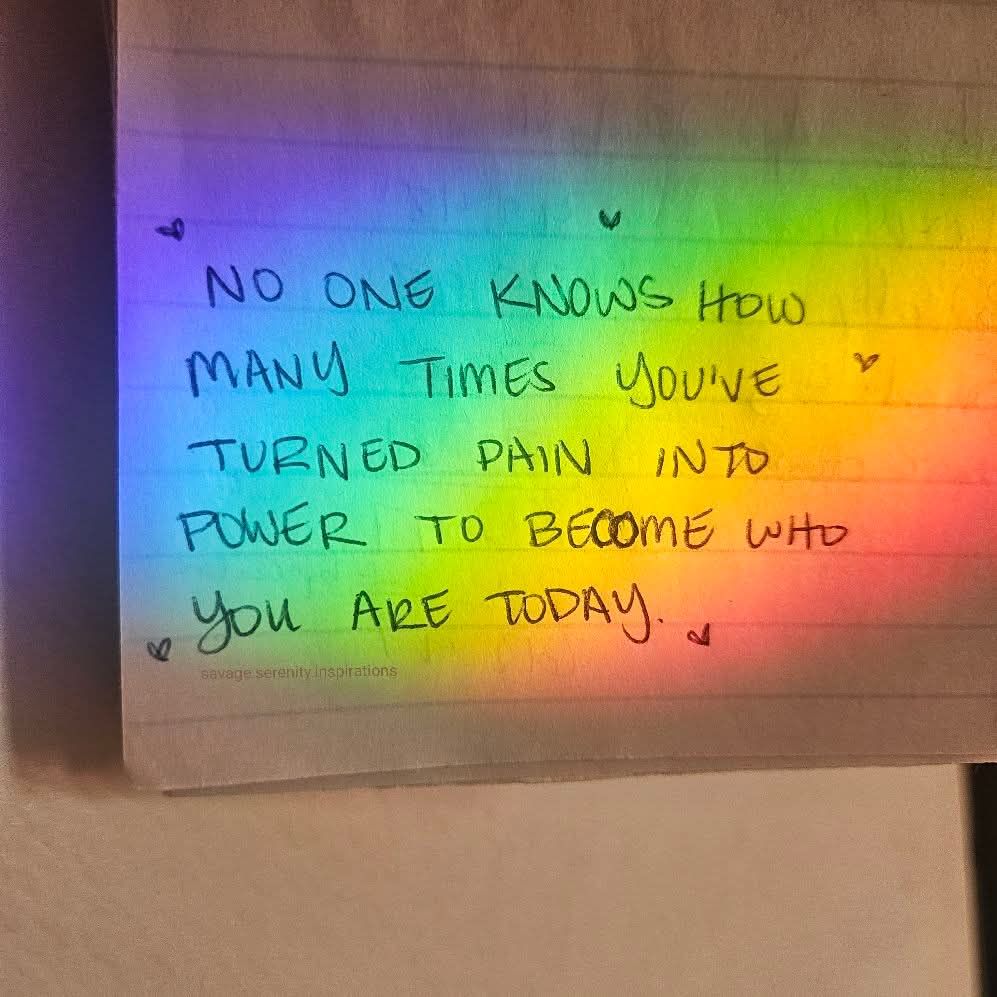 NO ONE KNOWS HOW
MANY TIMES YOU'VE
TURNED PAIN INTO
POWER TO BECOME WHO
YOU ARE TODAY.
savage.serenity.inspirations